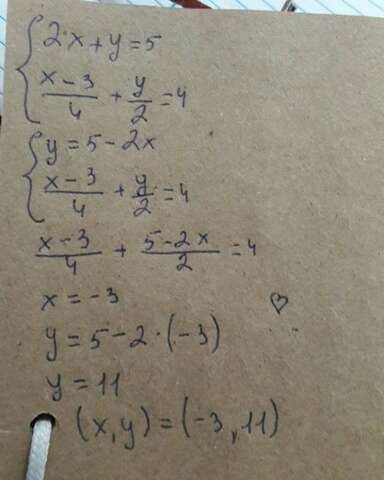 2x+y=5
x-3/4 + y/2 =4
y=5-2x
x-3/4 + y/2 =4
x-3/4 + 5-2x/2 =4
x=-3
y=5-2·(-3)
y=11
(x,y)=(-3,11)